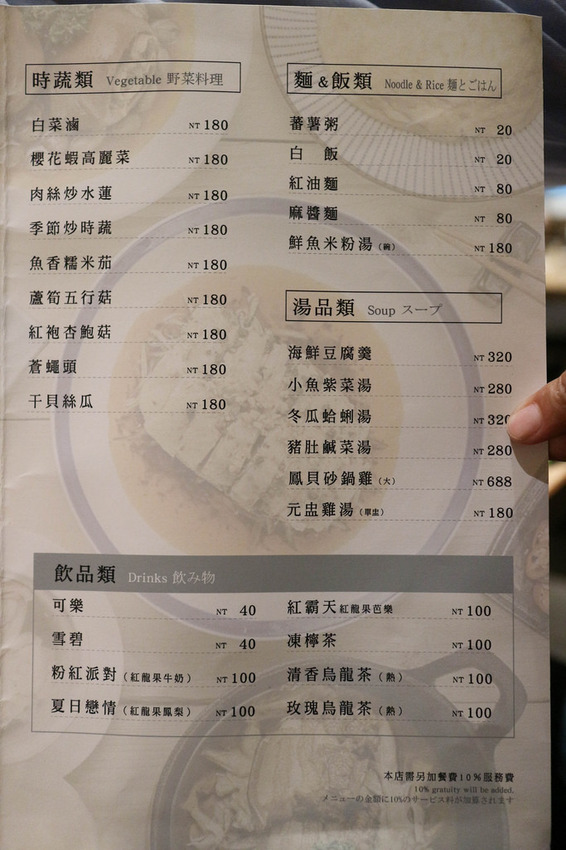 時蔬類 Vegetable 野菜料理
白菜滷 NT 180
櫻花蝦高麗菜 NT 180
肉絲炒水蓮 NT 180
季節炒時蔬 NT 180
魚香糯米茄 NT 180
蘆筍五行菇 NT 180
紅袍杏鮑菇 NT 180
蒼蠅頭 NT 180
干貝絲瓜 NT 180
麵&飯類 Noodle & Rice 麵とごはん
蕃薯粥 NT 20
白 飯 NT 20
紅油麵 NT 80
麻醬麵 NT 80
鮮魚米粉湯(碗) NT 180
湯品類 Soup スープ
海鮮豆腐羹 NT 320
小魚紫菜湯 NT 280
冬瓜蛤蜊湯 NT 320
豬肚鹹菜湯 NT 280
鳳貝砂鍋雞(大) NT 688
元盅雞湯(單盅) NT 180
飲品類 Drinks 飲み物
可樂 NT 40
雪碧 NT 40
粉紅派對(紅龍果牛奶) NT 100
夏日戀情(紅龍果鳳梨) NT 100
紅霸天紅龍果芭樂 NT 100
凍檸茶 NT 100
清香烏龍茶(熱) NT 100
玫瑰烏龍茶(熱) NT 100
本店需另加餐費10%服務費
10% gratuity will be added.
メニューの金額に10%のサービス料が加算されます